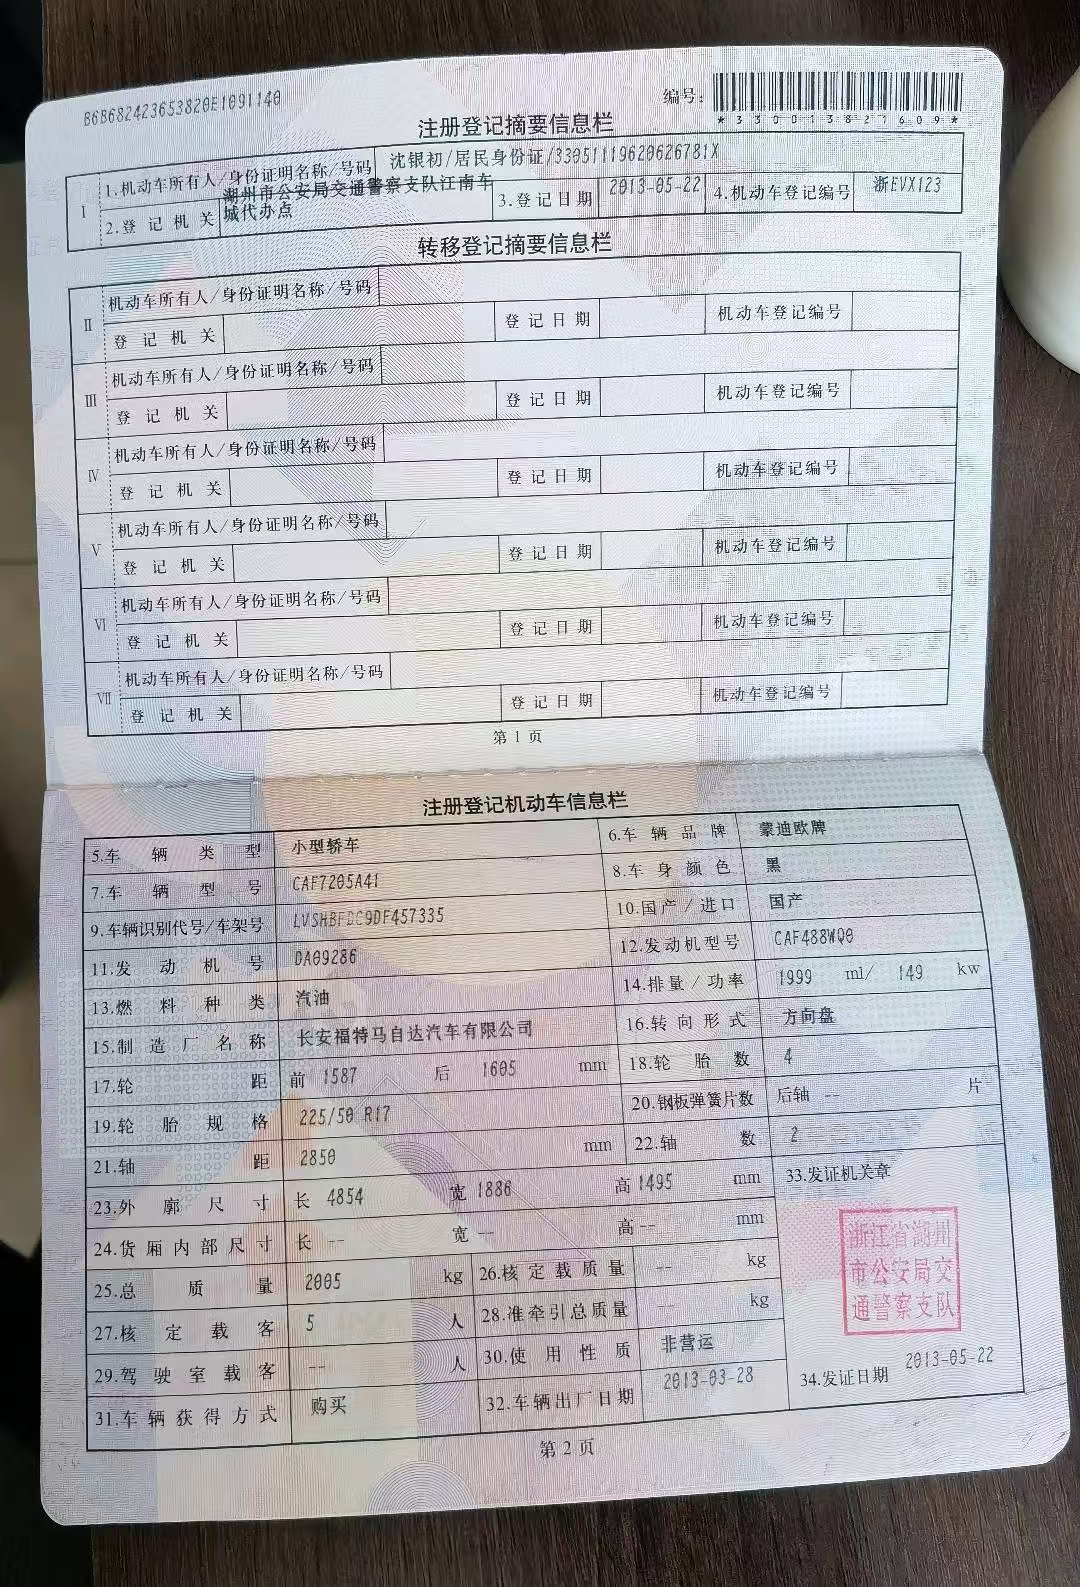 B6B682423653820E1091140
编号:
*330013821609*
注册登记摘要信息栏
I 1.机动车所有人/身份证明名称/号码 沈银初/居民身份证/33051119620626781X
2.登记机关 湖州市公安局交通警察支队江南车城代办点 3.登记日期 2013-05-22 4.机动车登记编号 浙EVX123
转移登记摘要信息栏
II 机动车所有人/身份证明名称/号码
登记机关 登记日期 机动车登记编号
III 机动车所有人/身份证明名称/号码
登记机关 登记日期 机动车登记编号
IV 机动车所有人/身份证明名称/号码
登记机关 登记日期 机动车登记编号
V 机动车所有人/身份证明名称/号码
登记机关 登记日期 机动车登记编号
VI 机动车所有人/身份证明名称/号码
登记机关 登记日期 机动车登记编号
VII 机动车所有人/身份证明名称/号码
登记机关 登记日期 机动车登记编号
第1页
注册登记机动车信息栏
5.车辆类型 小型轿车 6.车辆品牌 蒙迪欧牌
7.车辆型号 CAF7205A41 8.车身颜色 黑
9.车辆识别代号/车架号 LVSHBFDC9DF457335 10.国产/进口 国产
11.发动机号 DA09286 12.发动机型号 CAF488WQ0
13.燃料种类 汽油 14.排量/功率 1999 ml/ 149 kw
15.制造厂名称 长安福特马自达汽车有限公司 16.转向形式 方向盘
17.轮距 前 1587 后 1605 mm 18.轮胎数 4
19.轮胎规格 225/50 R17 20.钢板弹簧片数 后轴 -- 片
21.轴距 2850 mm 22.轴数 2
23.外廓尺寸 长 4854 宽 1886 高 1495 mm 33.发证机关章
24.货厢内部尺寸 长 -- 宽 -- 高 -- mm
浙江省湖州
市公安局交
通警察支队
25.总质量 2005 kg 26.核定载质量 -- kg
27.核定载客 5 人 28.准牵引总质量 -- kg
29.驾驶室载客 -- 人 30.使用性质 非营运
31.车辆获得方式 购买 32.车辆出厂日期 2013-03-28 34.发证日期 2013-05-22
第2页